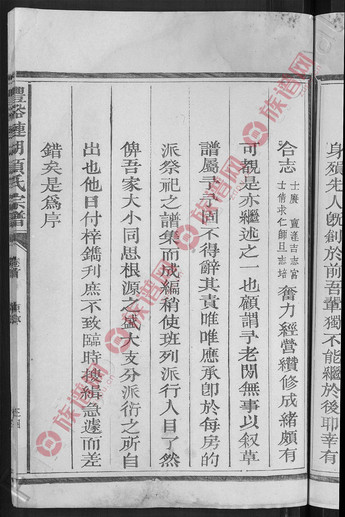 身須先人旣創於前吾輩獨不能繼於後耶幸有
合志
士賡 賣達吉志官
士倍求仁師且志培
奮力經營纘修成緒頗有
可觀是亦繼述之一也顧謂予老閒無事以叙草
譜屬予予固不得辭其責唯唯應承卽於每房的
派祭祀之譜集而成編稍使班列派行入目了然
俾吾家大小同思根源之盛大支分派衍之所自
出也他日付梓鐫刋庶不致臨時搜緝急遽而差
錯矣是爲序
豐谿蓮湖項氏宗譜
族谱网